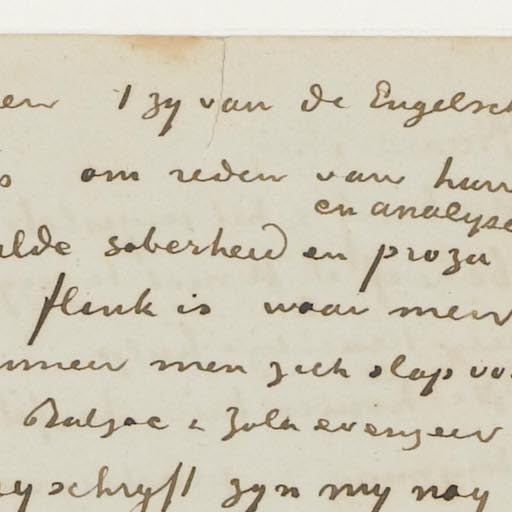 en 't zy van de Engelsch
s om reden van hun
en analyse
alde soberheid en proza
flink is waar men
nneer men zich slap vo
Balzac & Zola evenzeer
y schryft zyn my nog